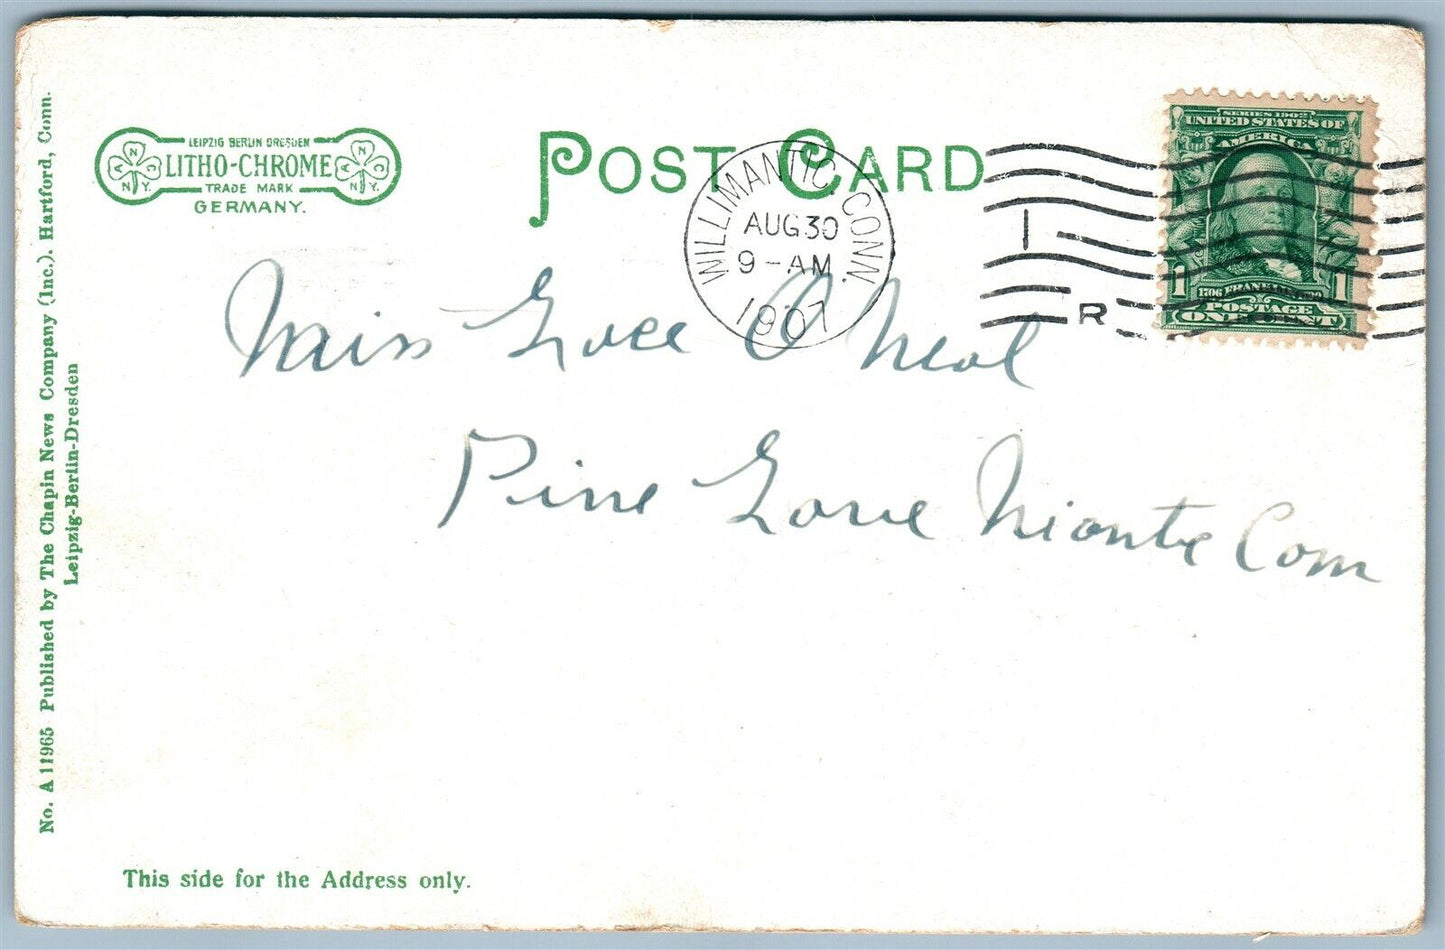 LEIPZIG BERLIN DRESDEN
LITHO-CHROME
TRADE MARK
GERMANY.
N A C N.Y.
N A C N.Y.
POST CARD
WILLIMANTIC, CONN.
AUG 30
9-AM
1907
I
R
SERIES 1902
UNITED STATES OF
AMERICA
1 1
1706 FRANKLIN 1790
POSTAGE
ONE CENT
Miss Grace O Neal
Pine Grove Niantic Conn
No. A 11965 Published by The Chapin News Company (Inc.), Hartford, Conn.
Leipzig-Berlin-Dresden
This side for the Address only.